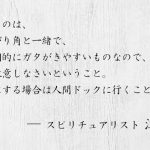 のは、
がり角と一緒で、
的にガタがきやすいものなので、
意しなさいということ。
する場合は人間ドックに行くこと
― スピリチュアリスト 江